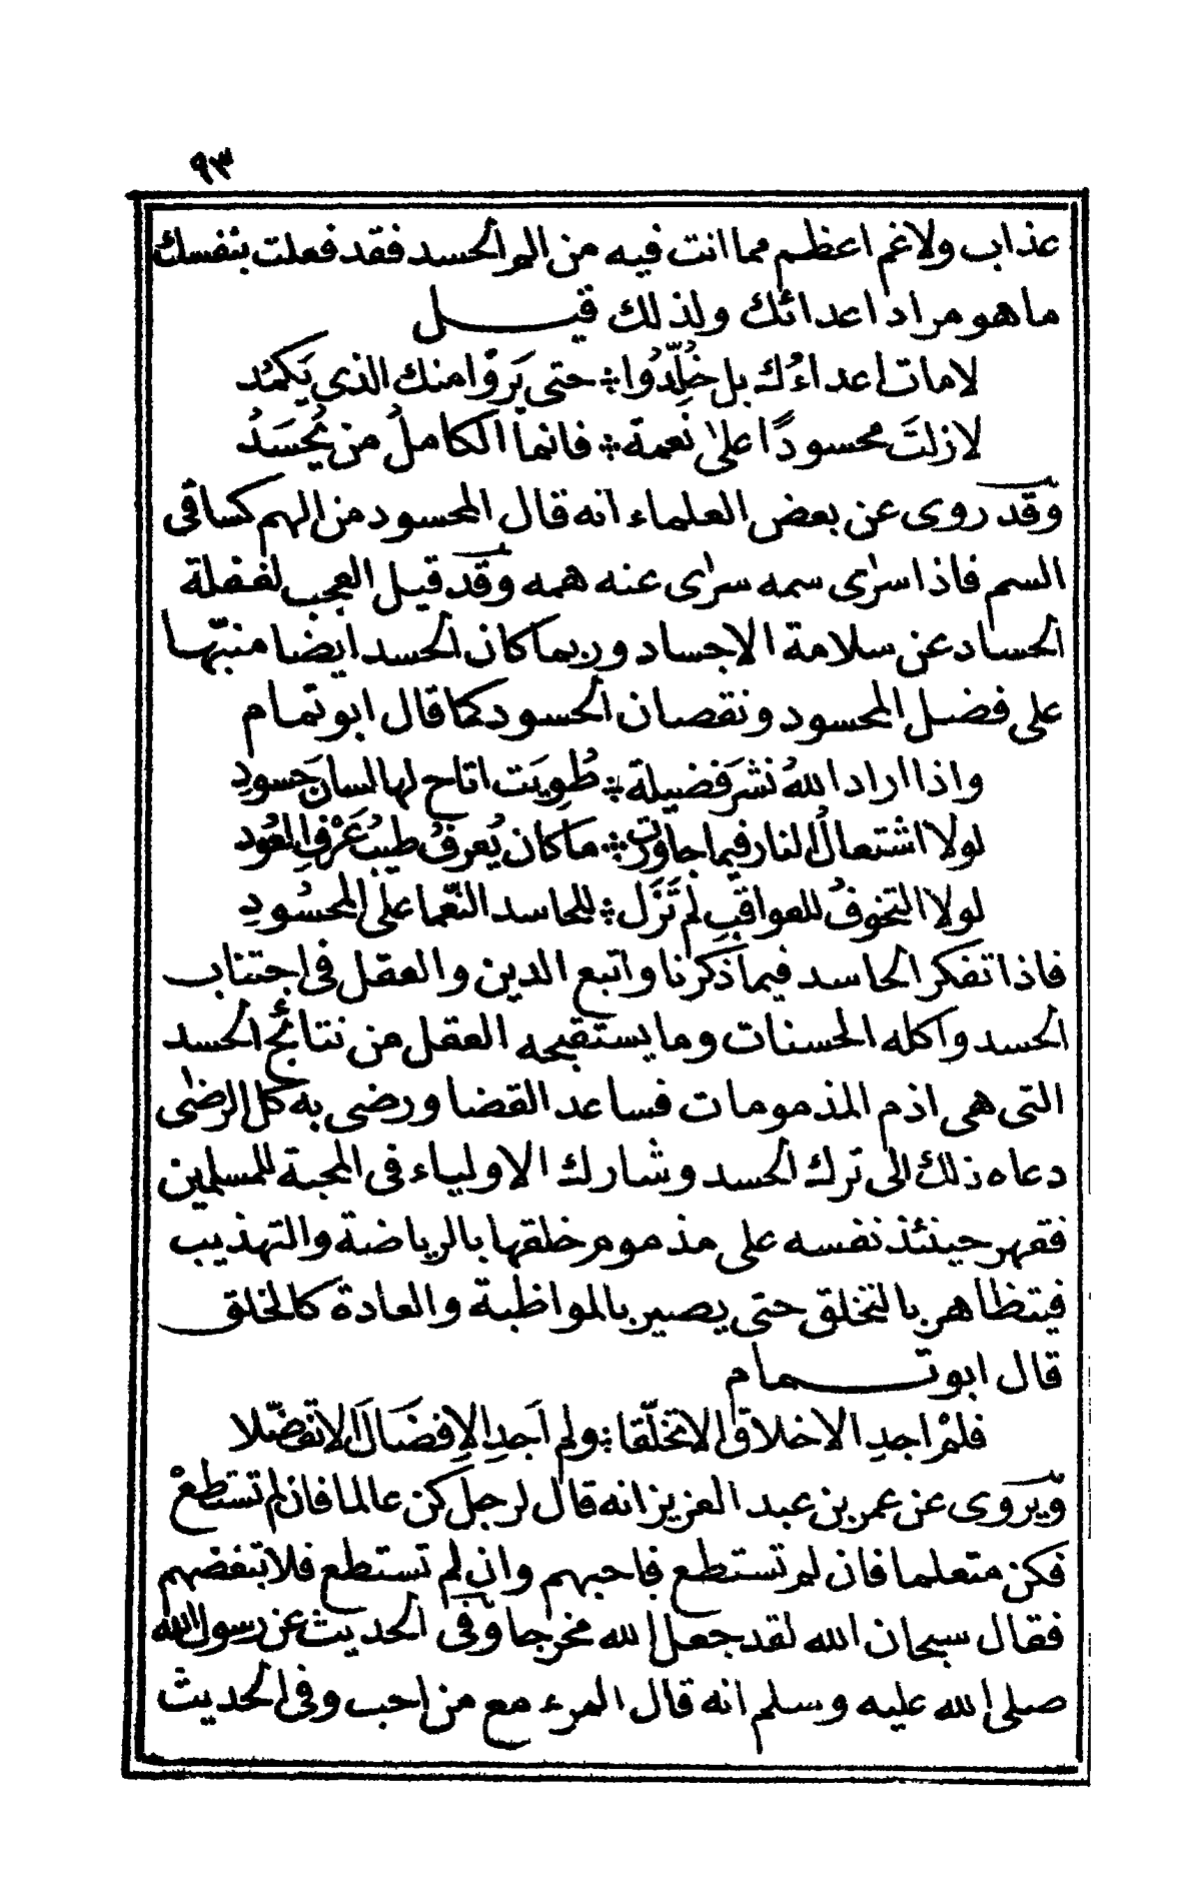 ٩٣
عذاب ولاغم اعظم مما انت فيه من الم الحسد فقد فعلت بنفسك
ما هو مراد اعدائك ولذلك قيل
لا مات اعداءُك بل خُلِّدُوا ؛ حتى يَرَوْا منك الذى يَكمُد
لا زلتَ محسودًا على نعمة ؛ فانما الكاملُ من يُحسَدُ
وقد روى عن بعض العلماء انه قال المحسود من الهم كساقى
السم فاذا سرٰى سمه سرٰى عنه همه وقد قيل العجب لغفلة
الحساد عن سلامة الاجساد وربما كان الحسد ايضا منبّها
على فضل المحسود ونقصان الحسود كما قال ابو تمام
واذا اراد اللهُ نشرَ فضيلة ؛ طُوِيَت اتاح لها لسانَ حَسودِ
لولا اشتعالُ النار فيما جاورت ؛ ما كان يُعرفُ طيبُ عَرْفِ العُود
لولا التخوفُ للعواقبِ لم تَزَل ؛ للحاسد النّعما على المحسُودِ
فاذا تفكر الحاسد فيما ذكرنا واتبع الدين والعقل فى اجتناب
الحسد واكله الحسنات وما يستقبحه العقل من نتائج الحسد
التى هى اذم المذمومات فساعد القضا ورضى به كل الرضٰى
دعاه ذلك الى ترك الحسد وشارك الاولياء فى المحبة للمسلمين
فقهر حينئذ نفسه على مذموم خلقها بالرياضة والتهذيب
فيتظاهر بالتخلق حتى يصير بالمواظبة والعادة كالخلق
قال ابو تمام
فلمْ اجدِ الاخلاق الا تخلّقا ؛ ولم اَجدِ الاِفضَالَ الا تفضّلا
ويروى عن عمر بن عبد العزيز انه قال لرجل كن عالما فان لم تستطعْ
فكن متعلما فان لم تستطع فاحبهم وان لم تستطع فلا تبغضهم
فقال سبحان الله لقد جعل الله مخرجا وفى الحديث عن رسول الله
صلى الله عليه وسلم انه قال المرء مع من احب وفى الحديث